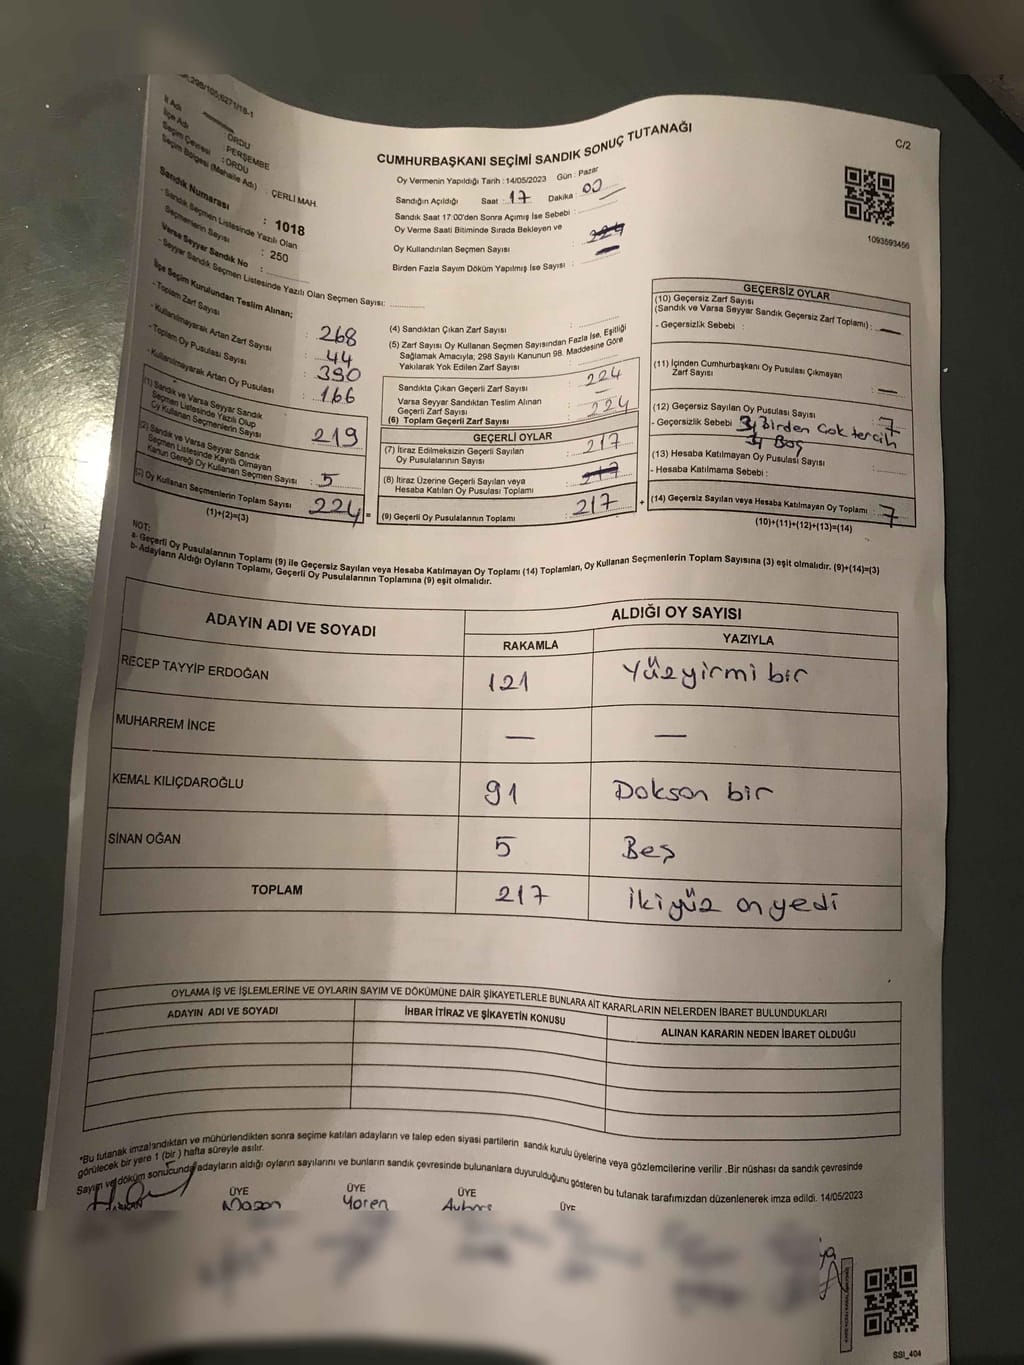 298/105;6271/18-1
C/2
CUMHURBAŞKANI SEÇİMİ SANDIK SONUÇ TUTANAĞI
İl Adı : ORDU
İlçe Adı : PERŞEMBE
Seçim Çevresi : ORDU
Seçim Bölgesi (Mahalle Adı) : ÇERLİ MAH.
Sandık Numarası : 1018
- Sandık Seçmen Listesinde Yazılı Olan
Seçmenlerin Sayısı : 250
Varsa Seyyar Sandık No :
- Seyyar Sandık Seçmen Listesinde Yazılı Olan Seçmen Sayısı:
Oy Vermenin Yapıldığı Tarih : 14/05/2023 Gün : Pazar
Sandığın Açıldığı Saat : 17 Dakika : 00
Sandık Saat 17.00'den Sonra Açımış İse Sebebi :
Oy Verme Saati Bitiminde Sırada Bekleyen ve
Oy Kullandırılan Seçmen Sayısı :
Birden Fazla Sayım Döküm Yapılmış İse Sayısı :
1093593466
İlçe Seçim Kurulundan Teslim Alınan;
- Toplam Zarf Sayısı : 268
- Kullanılmayarak Artan Zarf Sayısı : 44
- Toplam Oy Pusulası Sayısı : 390
- Kullanılmayarak Artan Oy Pusulası : 166
(1) Sandık ve Varsa Seyyar Sandık
Seçmen Listesinde Yazılı Olup
Oy Kullanan Seçmenlerin Sayısı : 219
(2) Sandık ve Varsa Seyyar Sandık
Seçmen Listesinde Kayıtlı Olmayan
Kanun Gereği Oy Kullanan Seçmen Sayısı : 5
(3) Oy Kullanan Seçmenlerin Toplam Sayısı : 224 =
(1)+(2)=(3)
(4) Sandıktan Çıkan Zarf Sayısı :
(5) Zarf Sayısı Oy Kullanan Seçmen Sayısından Fazla İse, Eşitliği
Sağlamak Amacıyla, 298 Sayılı Kanunun 98. Maddesine Göre
Yakılarak Yok Edilen Zarf Sayısı :
Sandıkta Çıkan Geçerli Zarf Sayısı : 224
Varsa Seyyar Sandıktan Teslim Alınan
Geçerli Zarf Sayısı : —
(6) Toplam Geçerli Zarf Sayısı : 224
GEÇERLİ OYLAR
(7) İtiraz Edilmeksizin Geçerli Sayılan
Oy Pusulalarının Sayısı : 217
(8) İtiraz Üzerine Geçerli Sayılan veya
Hesaba Katılan Oy Pusulası Toplamı :
(9) Geçerli Oy Pusulalarının Toplamı : 217 +
GEÇERSİZ OYLAR
(10) Geçersiz Zarf Sayısı
(Sandık ve Varsa Seyyar Sandık Geçersiz Zarf Toplamı) : —
- Geçersizlik Sebebi :
(11) İçinden Cumhurbaşkanı Oy Pusulası Çıkmayan
Zarf Sayısı : —
(12) Geçersiz Sayılan Oy Pusulası Sayısı : 7
- Geçersizlik Sebebi Birden Çok tercih
Boş
(13) Hesaba Katılmayan Oy Pusulası Sayısı :
- Hesaba Katılmama Sebebi :
(14) Geçersiz Sayılan veya Hesaba Katılmayan Oy Toplamı : 7
(10)+(11)+(12)+(13)=(14)
NOT:
a- Geçerli Oy Pusulalarının Toplamı (9) ile Geçersiz Sayılan veya Hesaba Katılmayan Oy Toplamı (14) Toplamları, Oy Kullanan Seçmenlerin Toplam Sayısına (3) eşit olmalıdır. (9)+(14)=(3)
b- Adayların Aldığı Oyların Toplamı, Geçerli Oy Pusulalarının Toplamına (9) eşit olmalıdır.
ADAYIN ADI VE SOYADI
ALDIĞI OY SAYISI
RAKAMLA YAZIYLA
RECEP TAYYİP ERDOĞAN 121 Yüzyirmi bir
MUHARREM İNCE — —
KEMAL KILIÇDAROĞLU 91 Doksan bir
SİNAN OĞAN 5 Beş
TOPLAM 217 İkiyüz onyedi
OYLAMA İŞ VE İŞLEMLERİNE VE OYLARIN SAYIM VE DÖKÜMÜNE DAİR ŞİKAYETLERLE BUNLARA AİT KARARLARIN NELERDEN İBARET BULUNDUKLARI
ADAYIN ADI VE SOYADI İHBAR İTİRAZ VE ŞİKAYETİN KONUSU ALINAN KARARIN NEDEN İBARET OLDUĞU
*Bu tutanak imzalandıktan ve mühürlendikten sonra seçime katılan adayların ve talep eden siyasi partilerin sandık kurulu üyelerine veya gözlemcilerine verilir .Bir nüshası da sandık çevresinde
görülecek bir yere 1 (bir ) hafta süreyle asılır.
Sayım ve döküm sonucunda adayların aldığı oyların sayılarını ve bunların sandık çevresinde bulunanlara duyurulduğunu gösteren bu tutanak tarafımızdan düzenlenerek imza edildi. 14/05/2023
ÜYE ÜYE ÜYE ÜYE
SSI_404